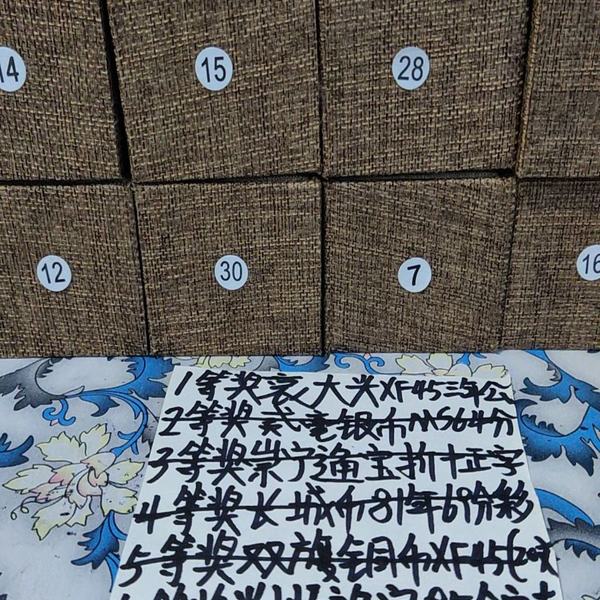 14 15 28
12 30 7 16
1等奖袁大头XF45三年公
2等奖贰毫银币MS64分
3等奖崇宁通宝折十正字
4等奖长城币81年69分彩
5等奖双旗铜币XF45 20文